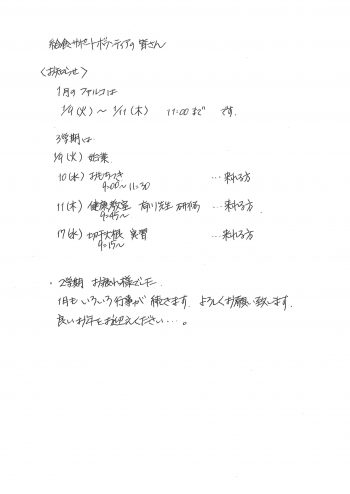 給食サポートボランティアの皆さん
〈お知らせ〉
1月のファルコは
1/9(火)～1/11(木) 11:00まで です。
3学期は
1/9(火)始業
10(水)おもちつき …来れる方
9:00～11:30
11(木)健康教室 市川先生 研修 …来れる方
9:45～
17(水)切干大根 実習 …来れる方
9:15～
・2学期 お疲れ様でした。
1月もいろいろ行事が続きます。よろしくお願い致します。
良いお年をお迎えください…。